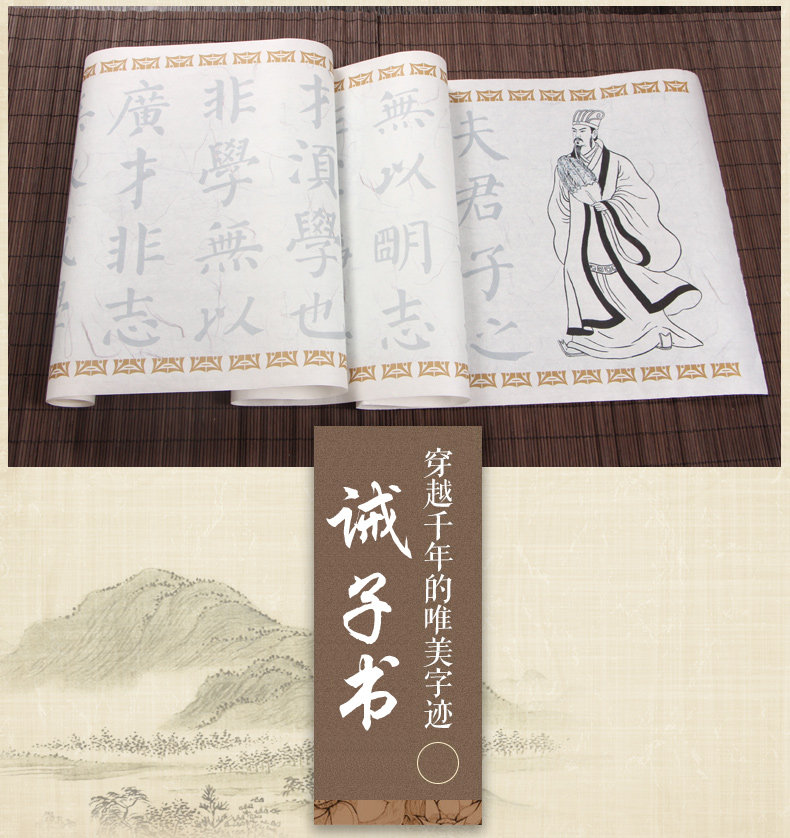 夫君子之
無以明志
才須學也
非學無以
廣才非志
穿越千年的唯美字迹
诫子书